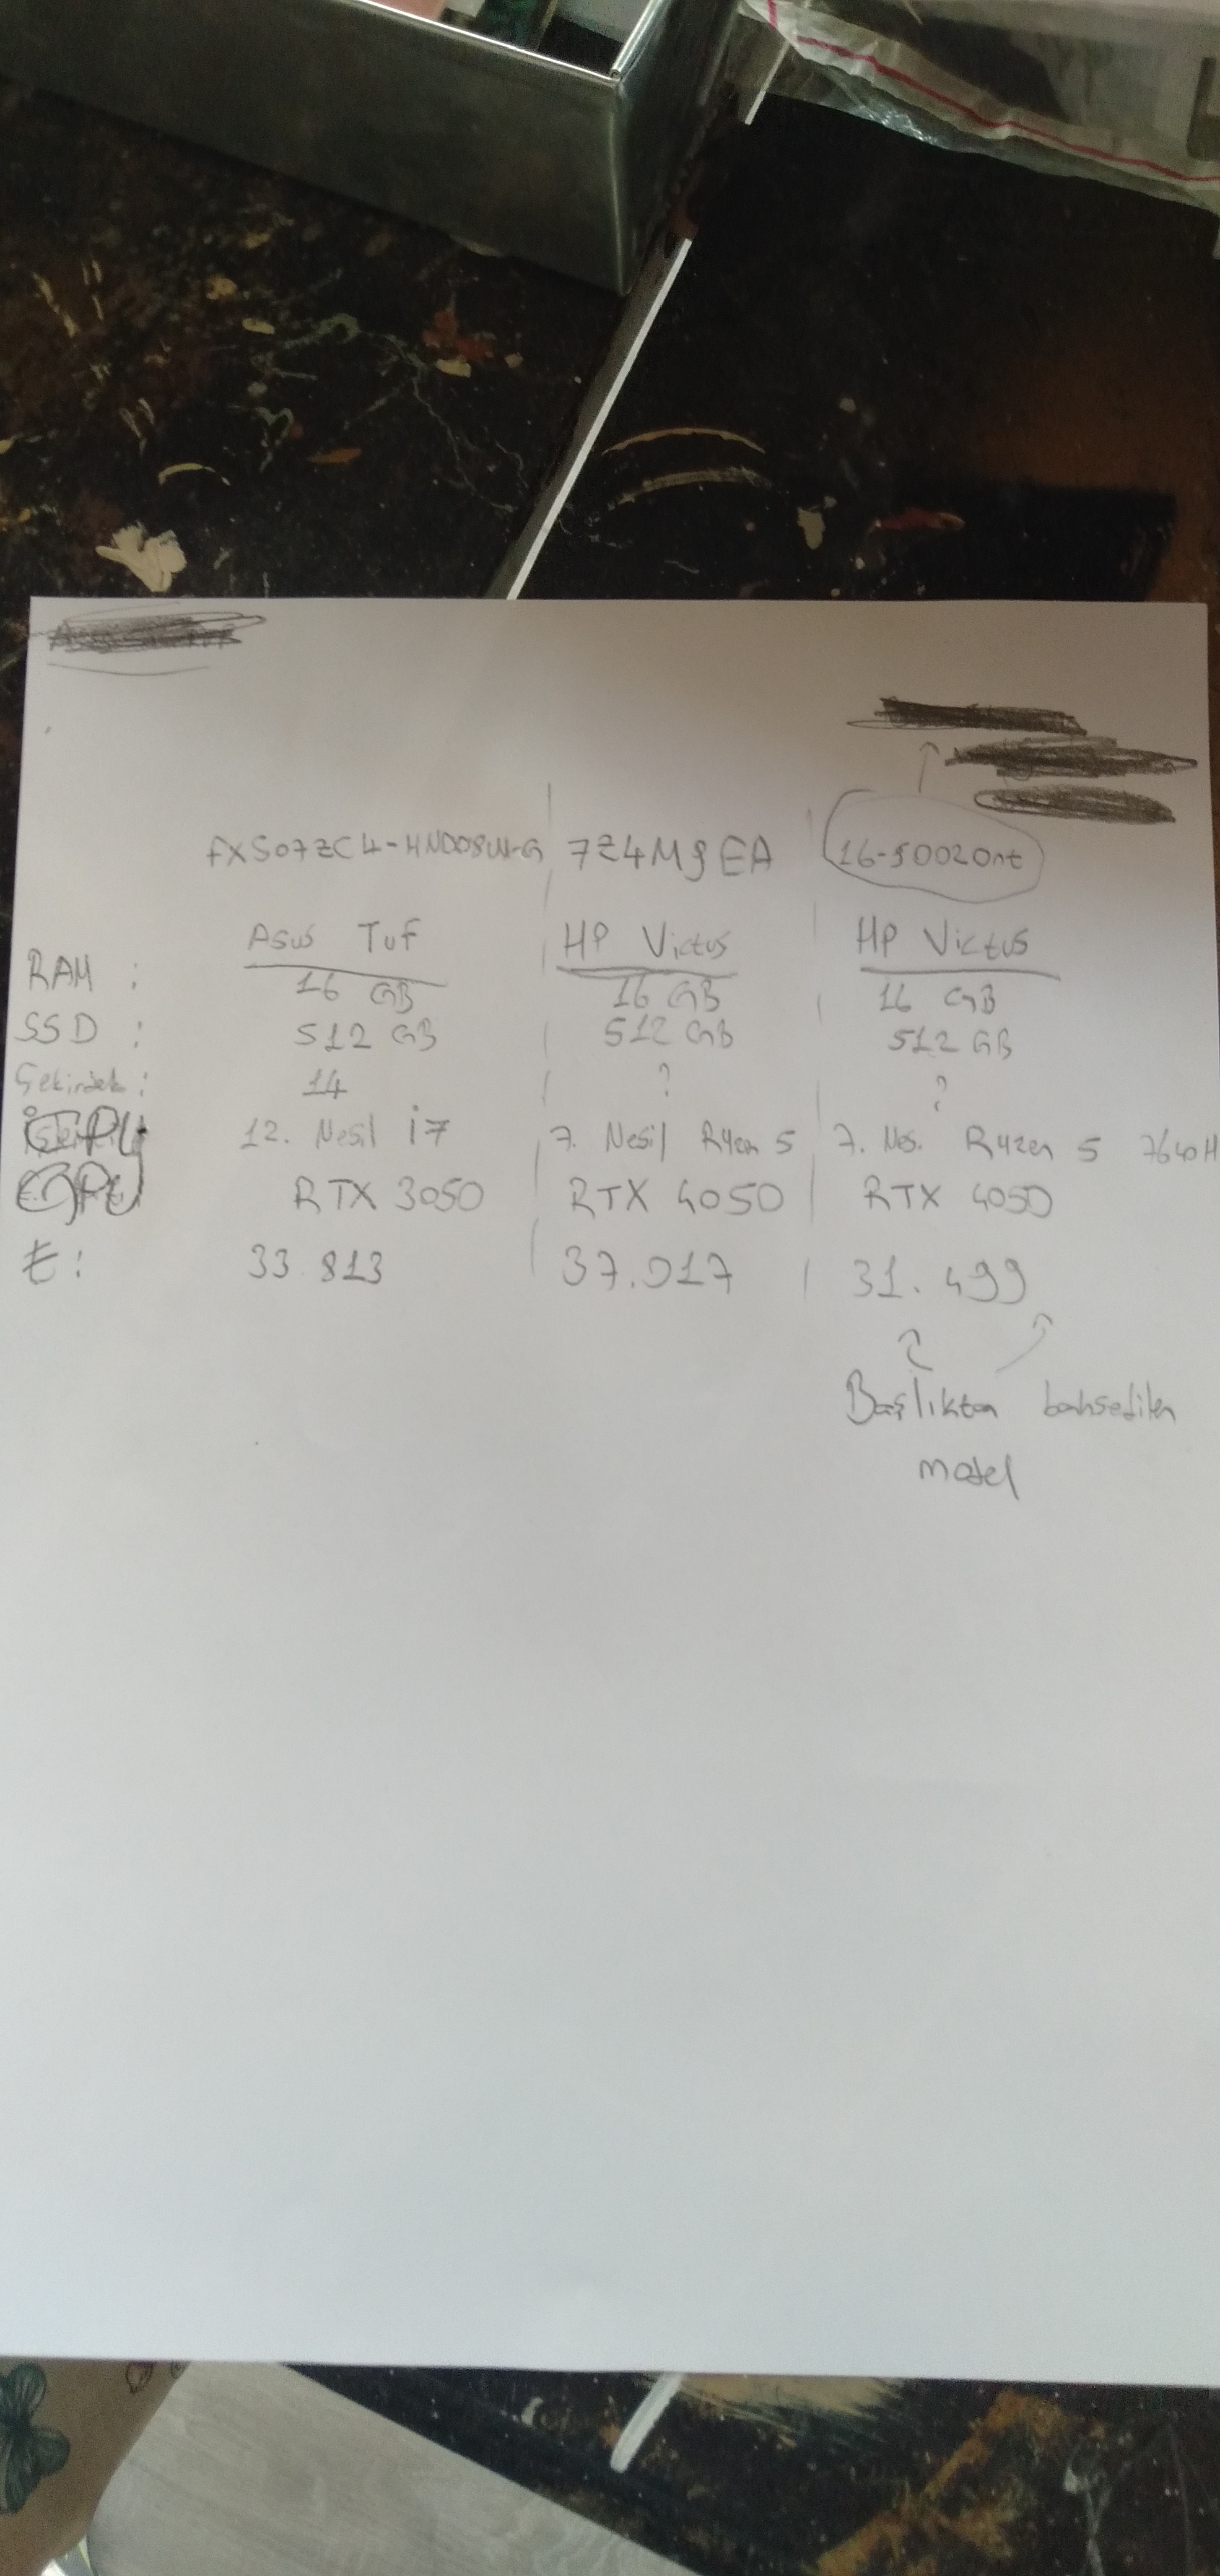 FX507ZC4-HN008W-G 7Z4M9EA 16-s0020nt
Asus Tuf HP Victus HP Victus
RAM : 16 GB 16 GB 16 GB
SSD : 512 GB 512 GB 512 GB
Çekirdek : 14 ? ?
CPU 12. Nesil i7 7. Nesil Ryzen 5 7. Nes. Ryzen 5 7640H
GPU RTX 3050 RTX 4050 RTX 4050
₺: 33.813 37.017 31.499
Başlıktan bahsedilen
model